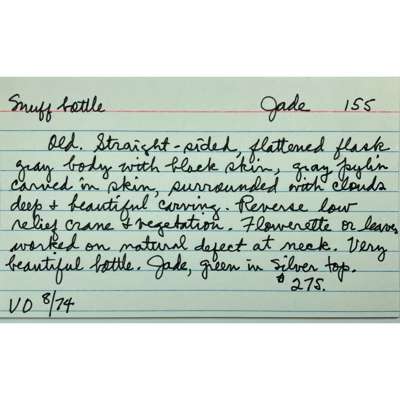 Snuff bottle Jade 155
Old. Straight-sided, flattened flask
gray body with black skin, gray fylin
carved in skin, surrounded with clouds
deep & beautiful carving. Reverse low
relief crane & vegetation. Flowerette or leaves
worked on natural defect at neck. Very
beautiful bottle. Jade, green in silver top.
$275.
VO 8/74